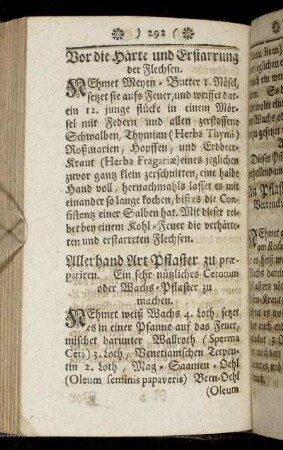 ) 292 (
Vor die Härte und Erstarrung
der Flechsen.
NEhmet Meyen-Butter 1. Nösel,
setzet sie aufs Feuer, und werffet dar-
ein 12. junge stücke in einem Mör-
sel mit Federn und allen zerstossene
Schwalben, Thymian (Herba Thymi)
Roßmarien, Hopffen, und Erdbeer-
Kraut (Herba Fragariæ) eines jeglichen
zuvor gantz klein zerschnitten, eine halbe
Hand voll, hernachmahls lasset es mit
einander so lange kochen, biß es die Con-
sistentz einer Salben hat. Mit dieser rei-
bet bey einem Kohl-Feuer die verhärte-
ten und erstarreten Flechsen.
Allerhand Art Pflaster zu præ-
pariren. Ein sehr nützliches Ceroeum
oder Wachs-Pflaster zu
machen.
NEhmet weiß Wachs 4. Loth, setzet
es in einer Pfanne auf das Feuer,
mischet darunter Wallroth (Sperma
Ceti) 3. Loth, Venetianischen Terpen-
tin 2. Loth, Mag-Saamen-Oehl
(Oleum seminis papaveris) Been-Oehl
(Oleum